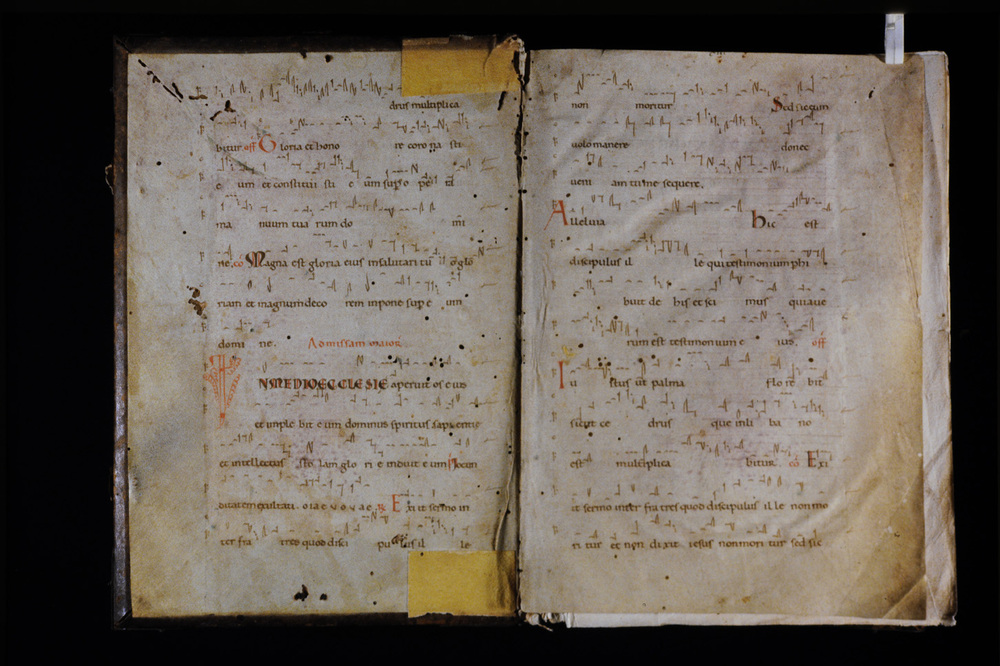 drus multiplica
bitur. off Gloria et hono re coro na sti
e um et constitui sti e um sup o pe
ma nuum tua rum do mi
ne. co Magna est gloria eius in salutari tu
riam et magnum deco rem inpone sup e um
domi ne. Ad missam maior
IN MEDIO ECCLESIE aperuit os eius
et imple bit e um dominus spiritus sapientie
et intellectus sto lam glo ri e induit e um Iocun
ditatem exultati. oia e v o v a e. R Exi it sermo in
ter fra tres quod disci pu lus il le
non moritur Sed sic eum
uolo manere donec
ueni am tu me sequere.
Alleluia hic est
discipulus il le qui testimonium phi
buit de his et sci mus quia ue
rum est testimonium e ius. off
Iu stus ut palma flo re bit
sicut ce drus que in li ba no
est multiplica bitur. co Exi
it sermo inter fra tres quod discipulus il le non mo
ri tur et non dixit iesus non mori tur sed sic